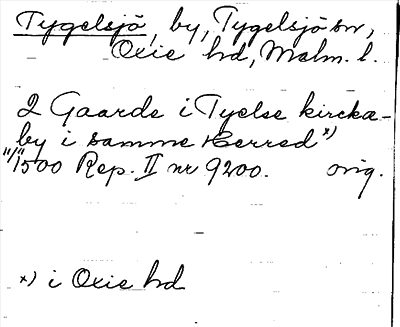 Tygelsjö, by, Tygelsjö sn,
Oxie hd, Malm. l.
2 Gaarde i Tyelse kircke-
by i samme Herred x)
11/11 1500 Rep. II nr 9200. orig.
x) i Oxie hd